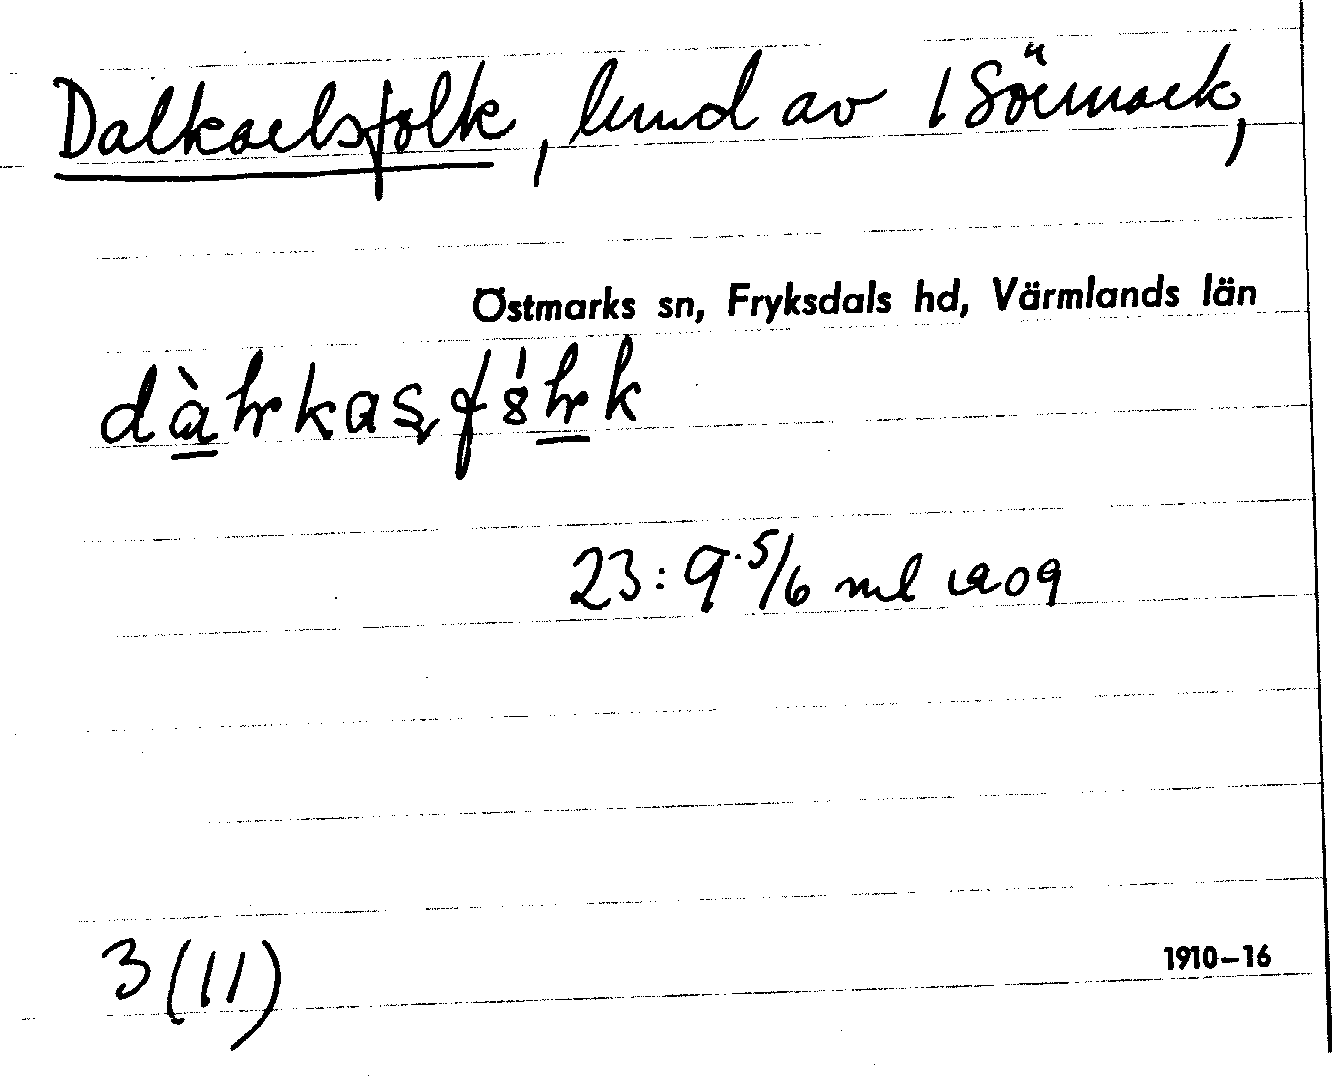 Dalkarlsfolk, kund av 1 Sörmark,
Östmarks sn, Fryksdals hd, Värmlands län
23:9. 5/6 ml 1909
3 (11)
1910–16